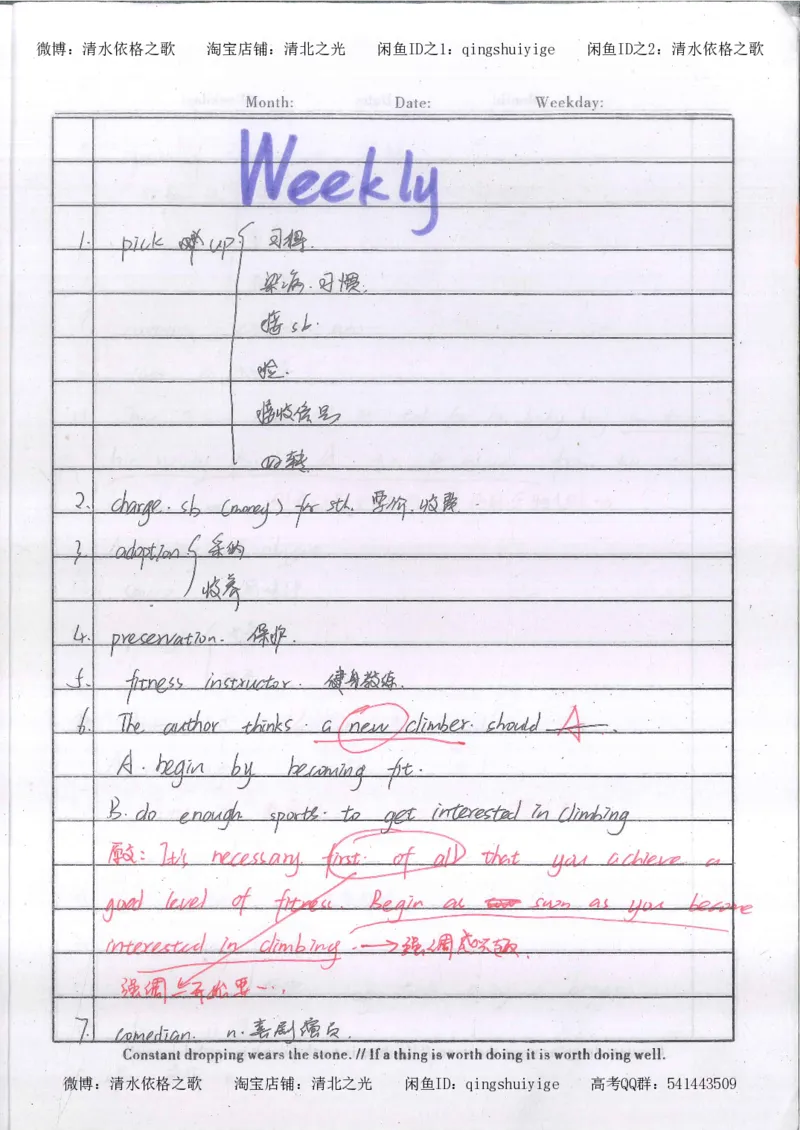 微博：清水依格之歌 淘宝店铺：清北之光 闲鱼ID之1：qingshuiyige 闲鱼ID之2：清水依格之歌
Month: Date: Weekday:
Weekly
1. pick up { 习得.
染病.习惯.
接sb.
捡.
接收信号
四转
2. charge. sb (money) for sth. 要价.收费
3. adoption { 采纳
收养
4. preservation. 保护.
5. fitness instructor. 健身教练.
6. The author thinks a new climber should A .
A. begin by becoming fit.
B. do enough sports to get interested in climbing
原文: It's necessary first of all that you achieve a
good level of fitness. Begin as soon as you become
interested in climbing. → 强调感兴趣.
强调一开始要...
7. comedian. n. 喜剧演员.
Constant dropping wears the stone. // If a thing is worth doing it is worth doing well.
微博：清水依格之歌 淘宝店铺：清北之光 闲鱼ID：qingshuiyige 高考QQ群：541443509